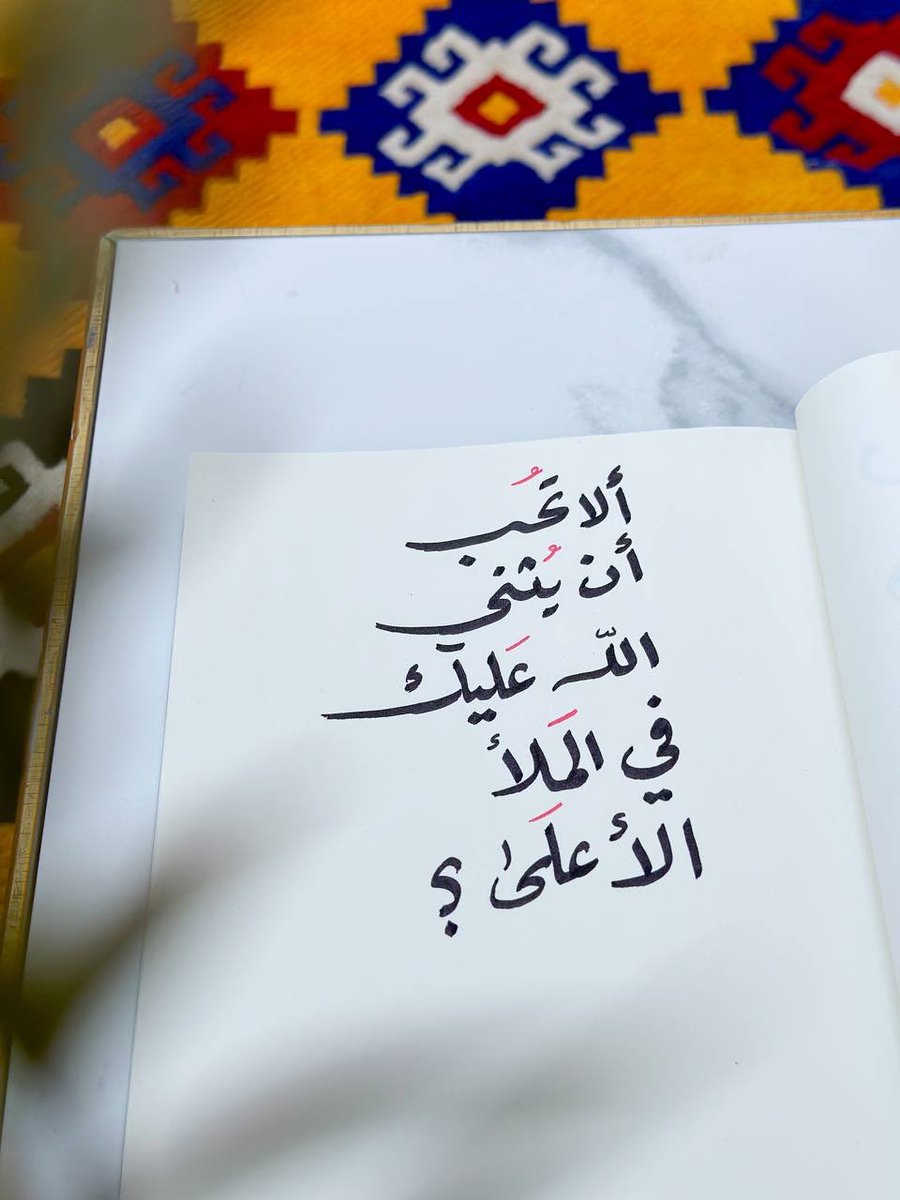 ألا تُحب
أن يُثني
اللّه عَليك
في المَلأ
الأعلَىٰ ؟